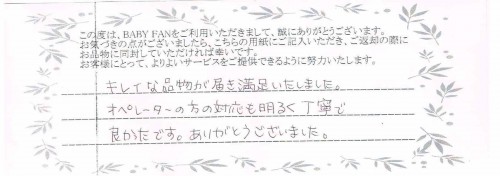 この度は、BABY FANをご利用いただきまして、誠にありがとうございます。
お気づきの点がございましたら、こちらの用紙にご記入いただき、ご返却の際に
お品物に同封していただければ幸いです。
お客様にとって、よりよいサービスをご提供できるように努力いたします。
キレイな品物が届き満足いたしました。
オペレーターの方の対応も明るく丁寧で
良かたです。ありがとうございました。